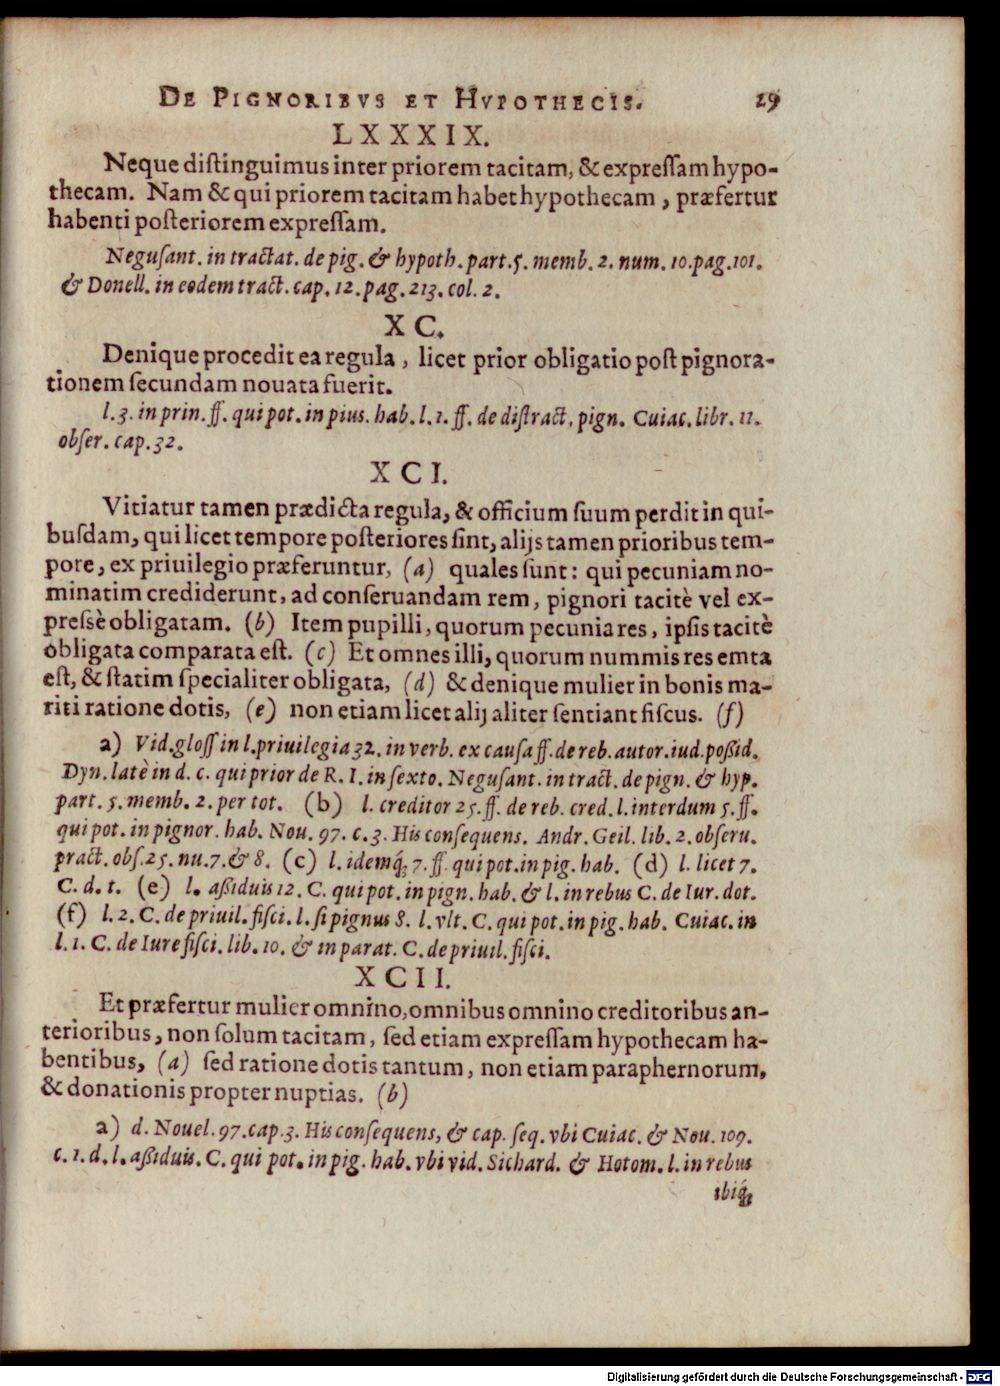 DE PIGNORIBVS ET HVPOTHECIS. 29
LXXXIX.
Neque distinguimus inter priorem tacitam, & expressam hypo-
thecam. Nam & qui priorem tacitam habet hypothecam, præfertur
habenti posteriorem expressam.
Negusant. in tractat. de pig. & hypoth. part. 5. memb. 2. num. 10. pag. 101.
& Donell. in eodem tract. cap. 12. pag. 213. col. 2.
XC.
Denique procedit ea regula, licet prior obligatio post pignora-
tionem secundam nouata fuerit.
l. 3. in prin. ff. qui pot. in pius. hab. l. 1. ff. de distract. pign. Cuiac. libr. 11.
obser. cap. 32.
XCI.
Vitiatur tamen prædicta regula, & officium suum perdit in qui-
busdam, qui licet tempore posteriores sint, alijs tamen prioribus tem-
pore, ex priuilegio præferuntur, (a) quales sunt: qui pecuniam no-
minatim crediderunt, ad conseruandam rem, pignori tacitè vel ex-
pressè obligatam. (b) Item pupilli, quorum pecunia res, ipsis tacitè
obligata comparata est. (c) Et omnes illi, quorum nummis res emta
est, & statim specialiter obligata, (d) & denique mulier in bonis ma-
riti ratione dotis, (e) non etiam licet alij aliter sentiant fiscus. (f)
a) Vid. gloss in l. priuilegia 32. in verb. ex causa ff. de reb. autor. iud. poßid.
Dyn. latè in d. c. qui prior de R. I. in sexto. Negusant. in tract. de pign. & hyp.
part. 5. memb. 2. per tot. (b) l. creditor 25. ff. de reb. cred. l. interdum 5. ff.
qui pot. in pignor. hab. Nou. 97. c. 3. His consequens. Andr. Geil. lib. 2. obseru.
pract. obs. 25. nu. 7. & 8. (c) l. idemq́; 7. ff. qui pot. in pig. hab. (d) l. licet 7.
C. d. t. (e) l. aßiduis 12. C. qui pot. in pign. hab. & l. in rebus C. de Iur. dot.
(f) l. 2. C. de priuil. fisci. l. si pignus 8. l. vlt. C. qui pot. in pig. hab. Cuiac. in
l. 1. C. de Iure fisci. lib. 10. & in parat. C. de priuil. fisci.
XCII.
Et præfertur mulier omnino, omnibus omnino creditoribus an-
terioribus, non solum tacitam, sed etiam expressam hypothecam ha-
bentibus, (a) sed ratione dotis tantum, non etiam paraphernorum,
& donationis propter nuptias. (b)
a) d. Nouel. 97. cap. 3. His consequens, & cap. seq. vbi Cuiac. & Nou. 109.
c. 1. d. l. aßiduis. C. qui pot. in pig. hab. vbi vid. Sichard. & Hotom. l. in rebus
ibiq́;
Digitalisierung gefördert durch die Deutsche Forschungsgemeinschaft - DFG